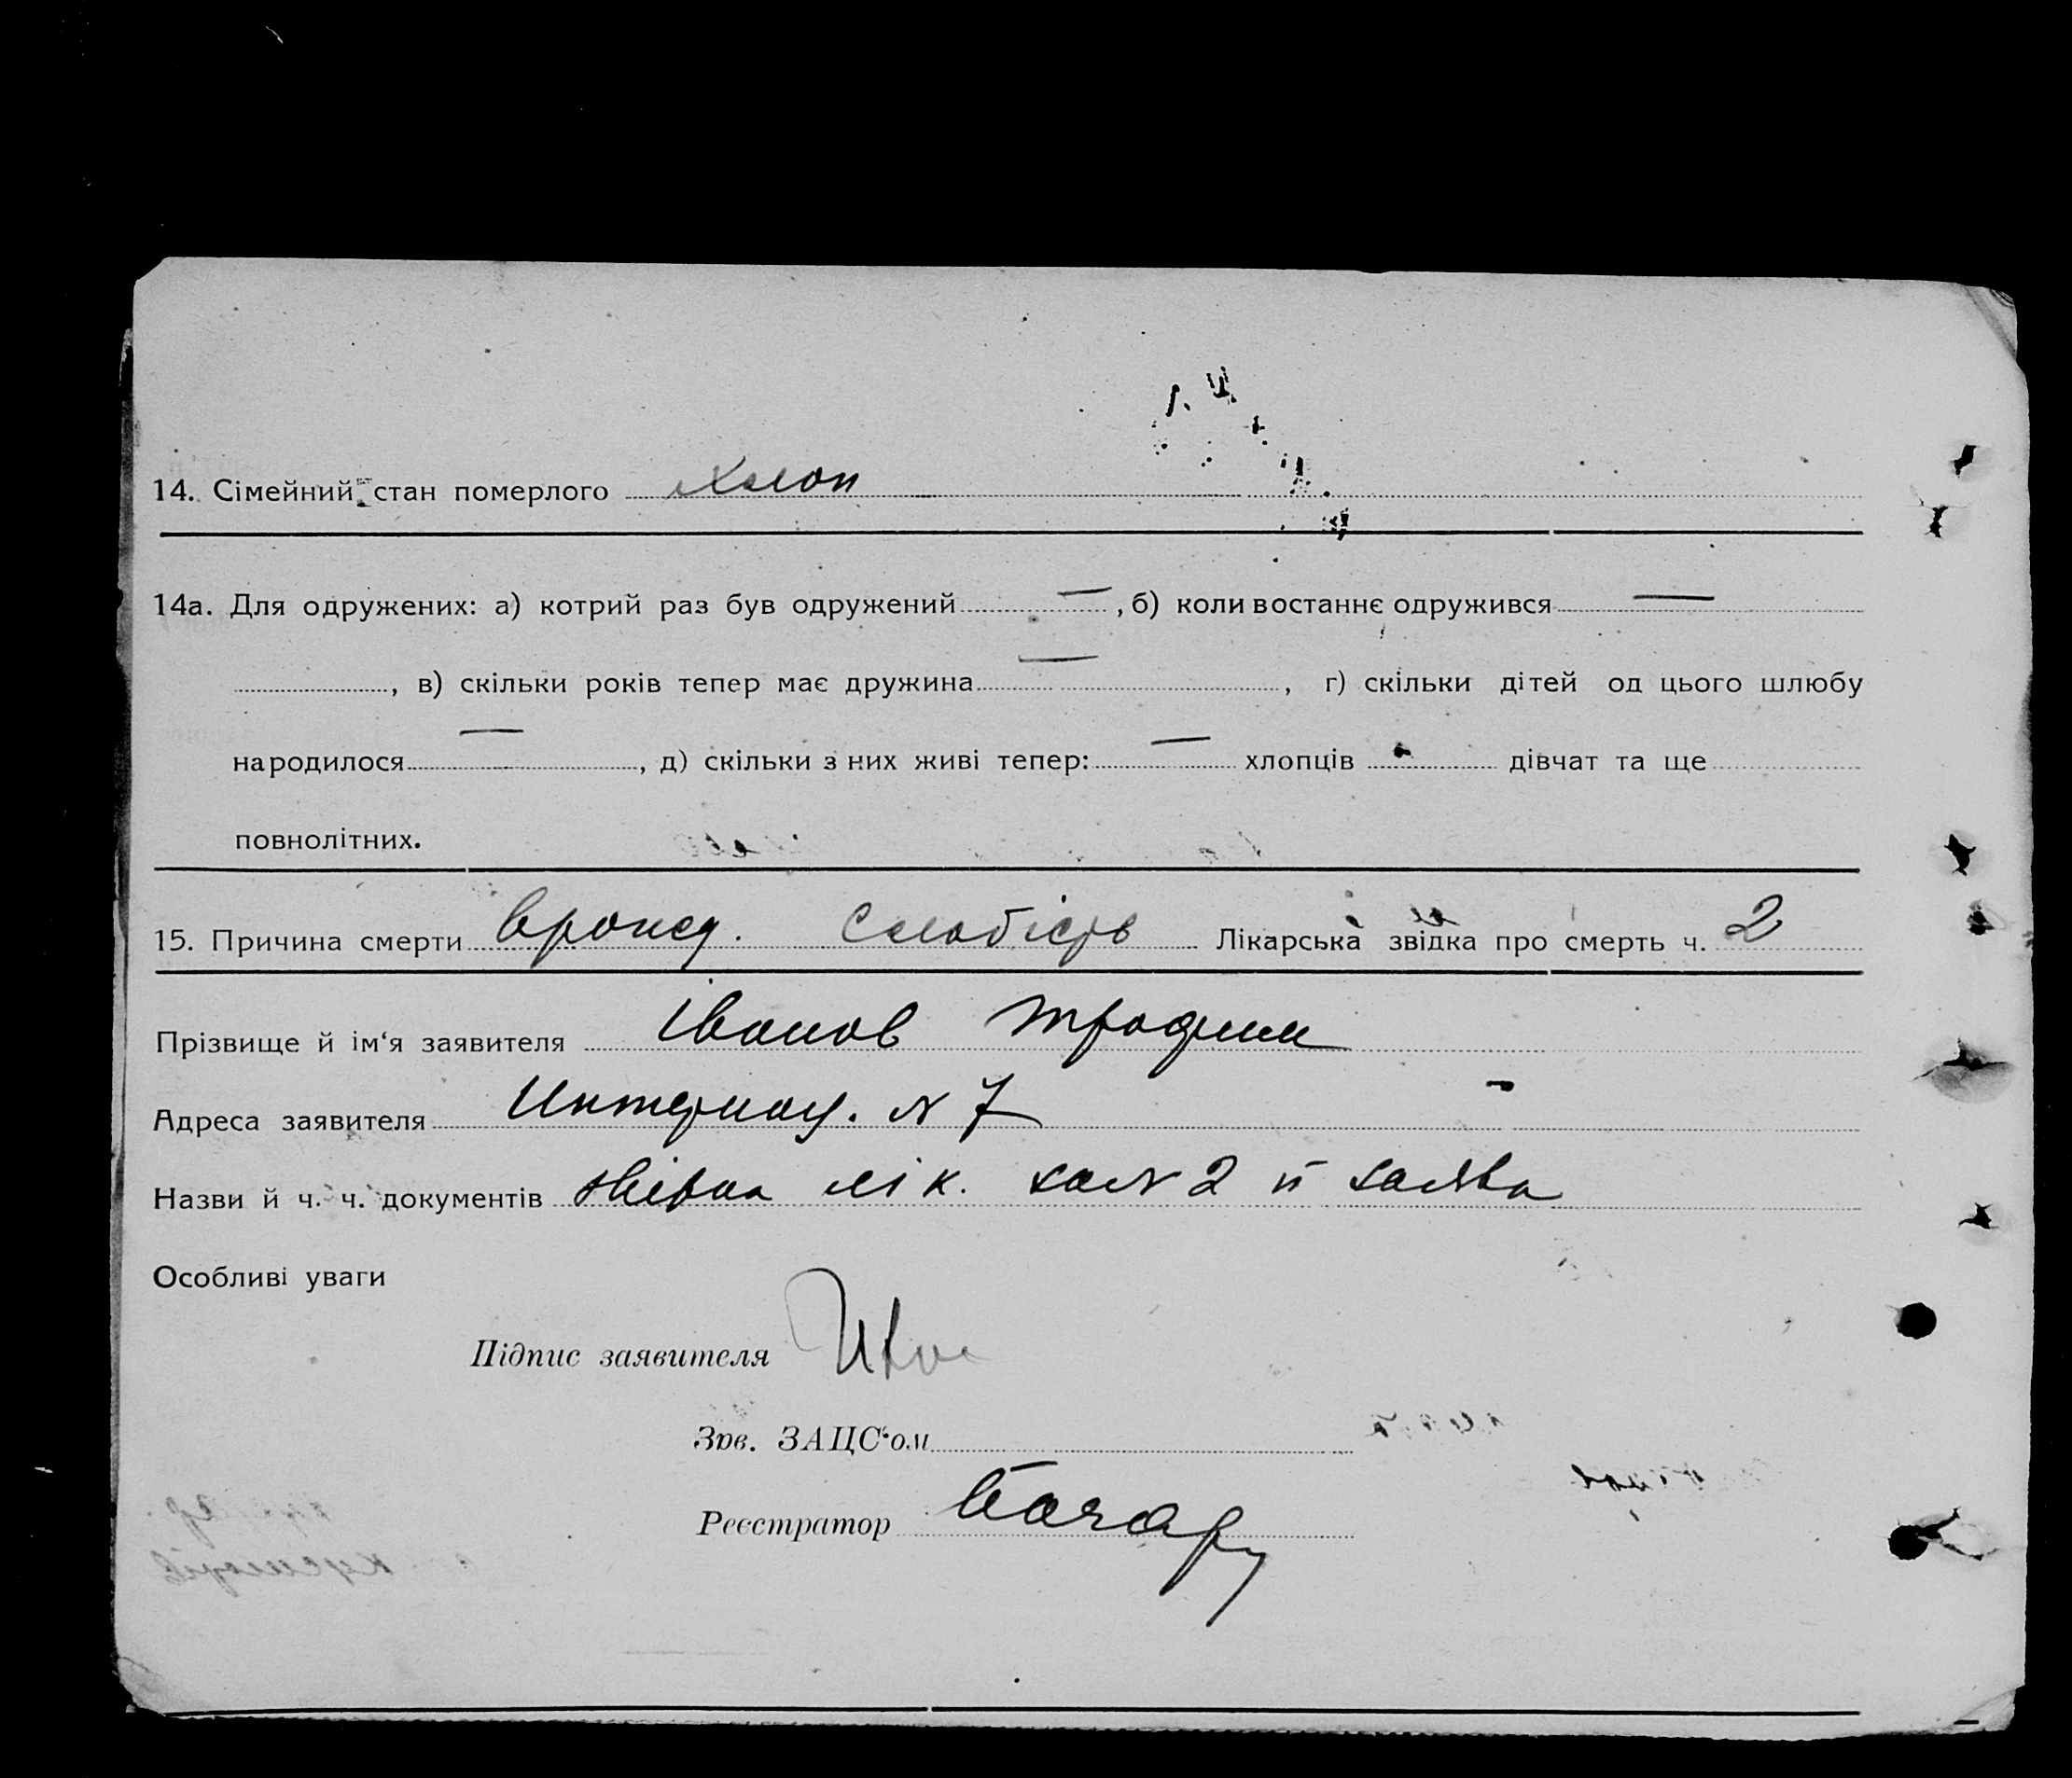 14. Сімейний стан померлого Хлоп
14а. Для одружених: а) котрий раз був одружений — , б) коли востаннє одружився —
, в) скільки років тепер має дружина — , г) скільки дітей од цього шлюбу
народилося — , д) скільки з них живі тепер: — хлопців дівчат та ще
повнолітних.
15. Причина смерти врожд. слабість Лікарська звідка про смерть ч. 2
Прізвище й ім'я заявителя Іванов Трофим
Адреса заявителя Интернац. N 7
Назви й ч. ч. документів звідка лік. за N 2 й заява
Особливі уваги
Підпис заявителя
Зав. ЗАЦС'ом
Реєстратор